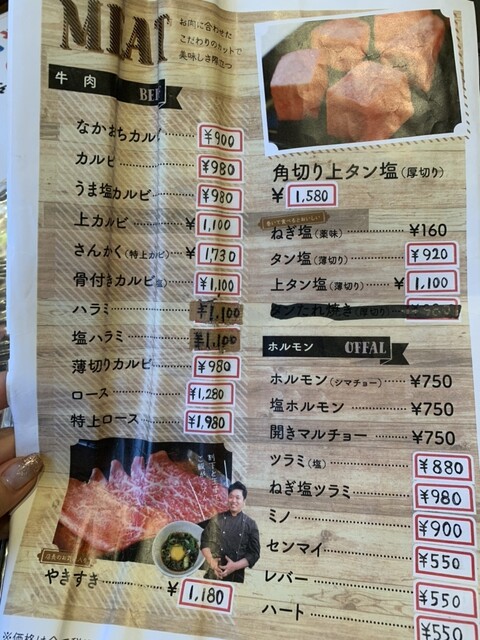 MEAT
お肉に合わせた
こだわりのカットで
美味しさ際立つ
牛肉 BEEF
なかおちカルビ ¥900
カルビ ¥980
うま塩カルビ ¥980
上カルビ ¥1,100
さんかく(特上カルビ) ¥1,730
骨付きカルビ(塩) ¥1,100
ハラミ ¥1,100
塩ハラミ ¥1,100
薄切りカルビ ¥980
ロース ¥1,280
特上ロース ¥1,980
やきすき ¥1,180
角切り上タン塩(厚切り)
¥1,580
ねぎ塩(薬味) ¥160
タン塩(薄切り) ¥920
上タン塩(薄切り) ¥1,100
タンたれ焼き(厚切り)
ホルモン OFFAL
ホルモン(シマチョー) ¥750
塩ホルモン ¥750
開きマルチョー ¥750
ツラミ(塩) ¥880
ねぎ塩ツラミ ¥980
ミノ ¥900
センマイ ¥550
レバー ¥550
ハート ¥550